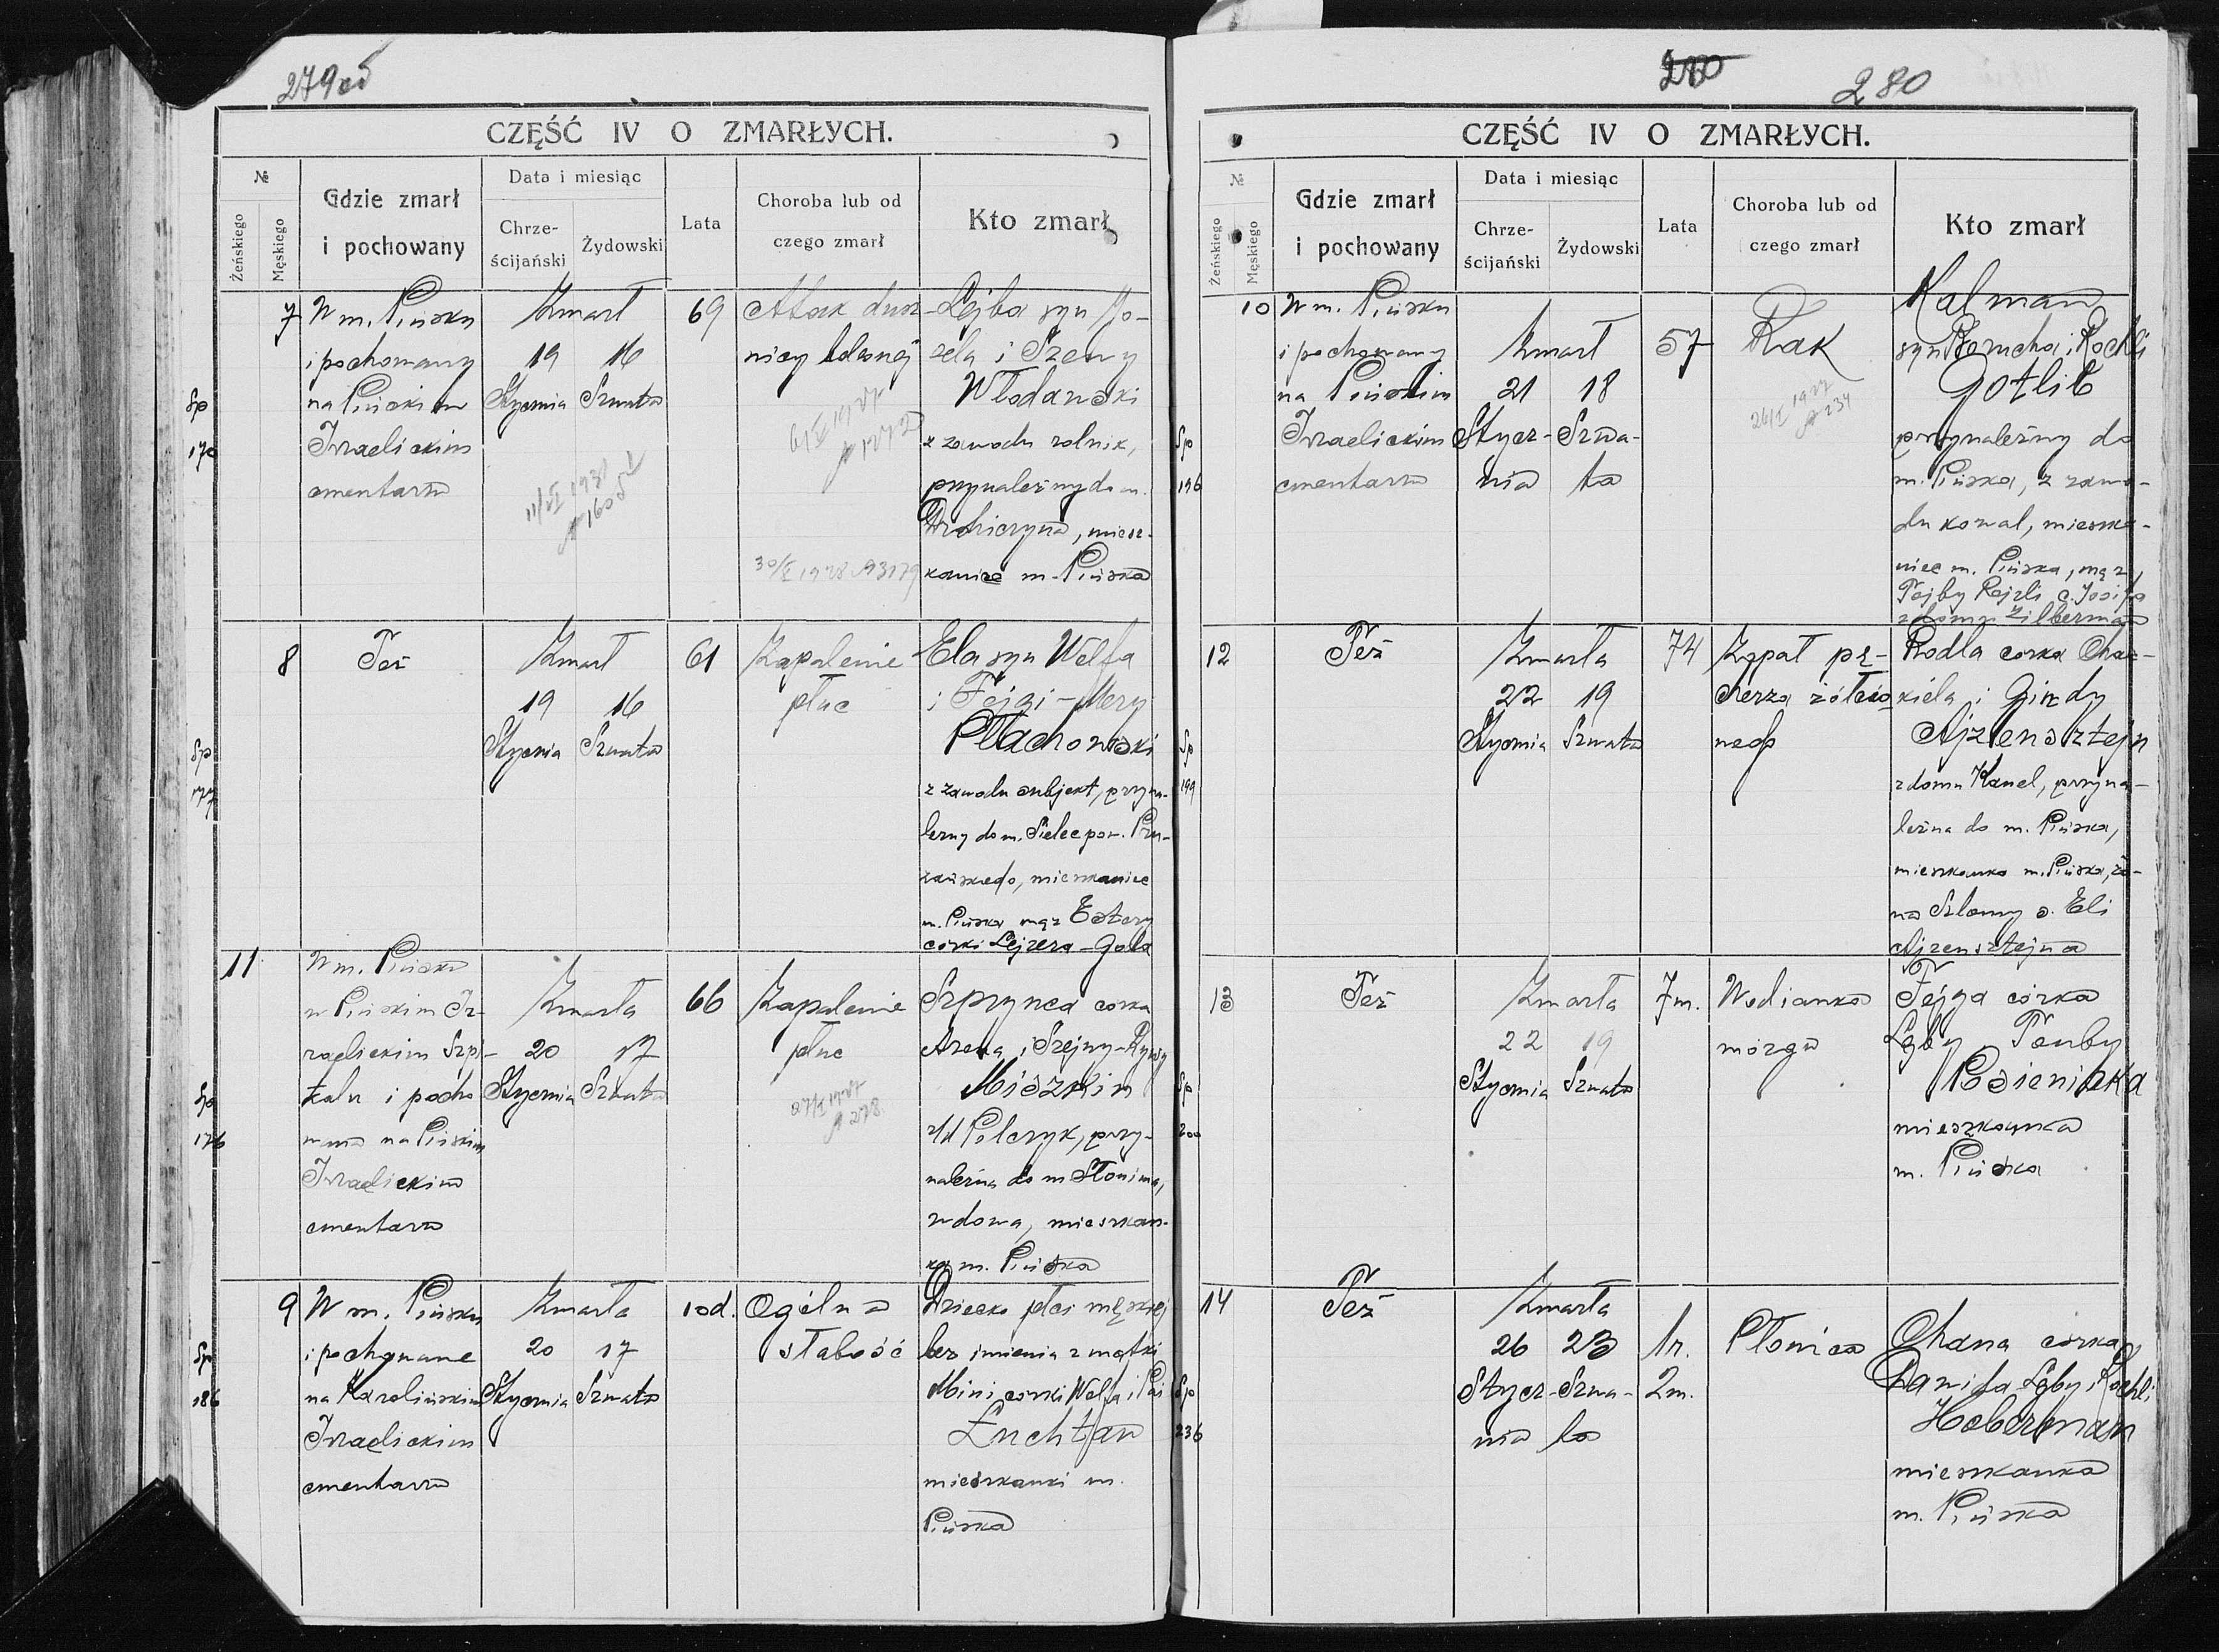 279
CZĘŚĆ IV O ZMARŁYCH.
№
Żeńskiego
Męskiego
Gdzie zmarł
i pochowany
Data i miesiąc
Chrze-
ścijański
Żydowski
Lata
Choroba lub od
czego zmarł
Kto zmarł
7
W m. Pińsku
i pochowany
na Pińskim
Izraelickim
cmentarzu
Zmarł
19 16
Stycznia Szwata
69
Atak dusz-
nicy
Lejba syn Jo-
sela i Szeny
Włodawski
z zawodu rolnik,
przynależny do m.
Drohiczyna, miesz-
kaniec m. Pińska
Sp
170
11/VI 1931
№ 1605
30/X 1928 №3179
8
Też
Zmarł
19 16
Stycznia Szwata
61
Zapalenie
płuc
Ela syn Wolfa
i Fejgi-Mery
Płachowski
z zawodu subjekt, przyna-
leżny do m. Sielec pow. Pru-
żańskiego, mieszkaniec
m. Pińska mąż Estery
córki Lejzera-Gola
Sp
177
11
W m. Pińsku
w Pińskim Iz-
raelickim Szpi-
talu i pocho
wana na Pińskim
Izraelickim
cmentarzu
Zmarła
20 17
Stycznia Szwata
66
Zapalenie
płuc
27/I 1927
№ 278
Szprynca córka
Arona i Szejny-Rywy
Miszkin
z/d Pilczyk, przy-
należna do m Słonima,
wdowa, mieszkan-
ka m. Pińska
Sp
176
9
W m. Pińsku
i pochowane
na Karolińskim
Izraelickim
cmentarzu
Zmarła
20 17
Stycznia Szwata
10d.
Ogólna
słabość
Dziecko płci męskiej
bez imienia z matki
Mini córki Wolfa i
Łuchtan
mieszkanki m.
Pińska
Sp
186
280
CZĘŚĆ IV O ZMARŁYCH.
№
Żeńskiego
Męskiego
Gdzie zmarł
i pochowany
Data i miesiąc
Chrze-
ścijański
Żydowski
Lata
Choroba lub od
czego zmarł
Kto zmarł
10
W m. Pińsku
i pochowany
na Pińskim
Izraelickim
cmentarzu
Zmarł
21 18
Stycz- Szwa-
nia ta
57
Rak
26/I 1927
№ 234
Kalman
syn Borucha i Rochli
Gotlib
przynależny do
m. Pińska, z zawo-
du kowal, mieszka-
niec m. Pińska, mąż
Tojby Rejzli c. Josifa
z domu Zilberman
Sp
196
12
Też
Zmarła
22 19
Stycznia Szwata
74
Zapal pę-
cherza żółcio
wego
Rodla córka Chac-
kiela i Gindy
Ajzensztejn
z domu Kanel, przyna-
leżna do m. Pińska,
mieszkanka m. Pińska, żo-
na Szlomy s. Eli
Ajzensztejna
Sp
199
13
Też
Zmarła
22 19
Stycznia Szwata
7m.
Wodianka
mózgu
Fejga córka
Lejby i Tauby
Posienicka
mieszkanka
m. Pińska
Sp
200
14
Też
Zmarła
26 23
Stycz- Szwa-
nia ta
1r.
2m.
Płonica
Chana córka
Dawida-Lejby i Rochli
Hoberman
mieszkanka
m. Pińska
Sp
236